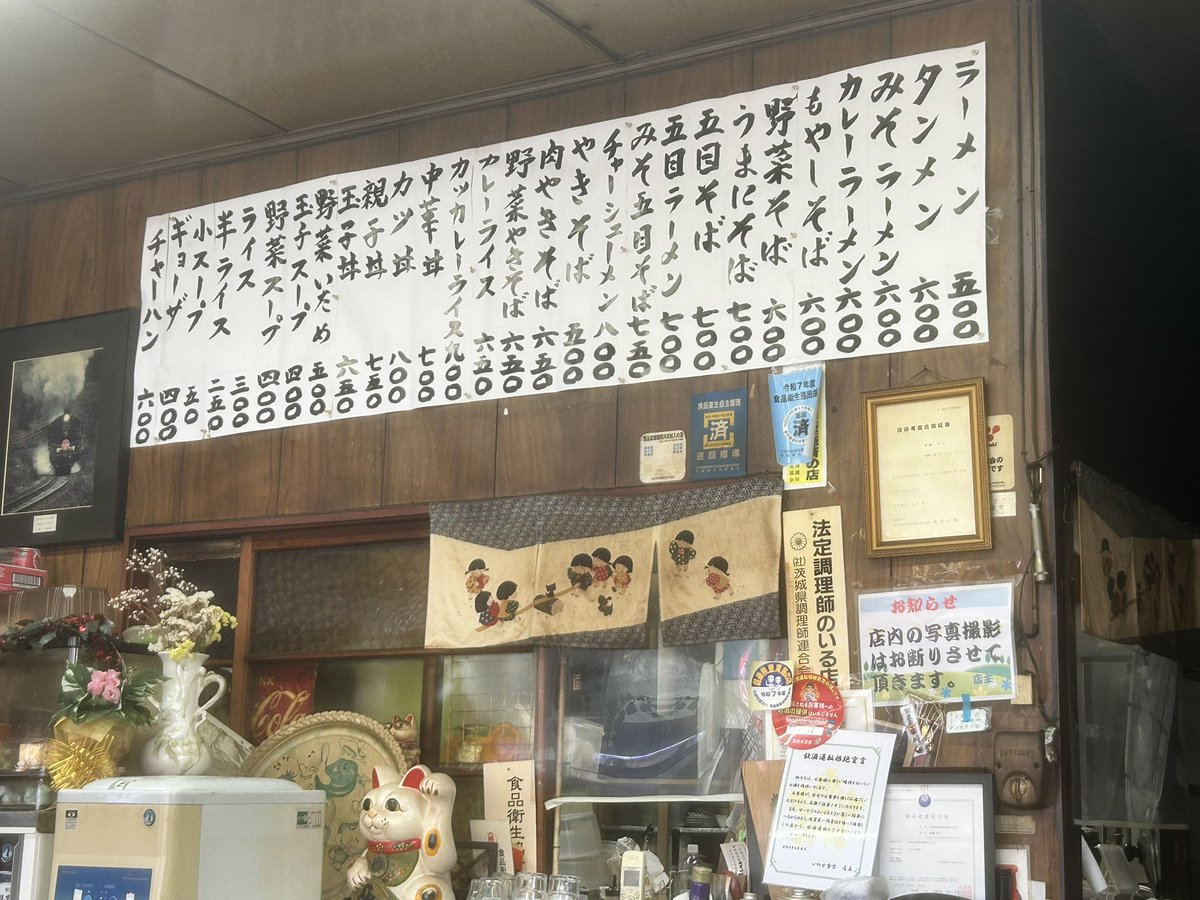 ラーメン 五〇〇
タンメン 六〇〇
みそラーメン 六〇〇
カレーラーメン 六〇〇
もやしそば 六〇〇
野菜そば 六〇〇
うまにそば 七〇〇
五目そば 七〇〇
五目ラーメン 七〇〇
みそ五目そば 七五〇
チャーシューメン 八〇〇
やきそば 五〇〇
肉やきそば 六五〇
野菜やきそば 六五〇
カレーライス 六五〇
カツカレーライス 九〇〇
中華丼 七〇〇
カツ丼 八〇〇
親子丼 七五〇
玉子丼 六五〇
野菜いため 五〇〇
玉子スープ 四〇〇
野菜スープ 四〇〇
ライス 三〇〇
半ライス 二五〇
小スープ 五〇
ギョーザ 四〇〇
チャーハン 六〇〇
食品衛生自主管理
済
巡回指導
令和7年度
食品衛生巡回指導
済
法定調理師のいる店
(社)茨城県調理師連合会
お知らせ
店内の写真撮影
はお断りさせて
頂きます。
店主
令和7年度
飲酒運転根絶宣言
食品衛生